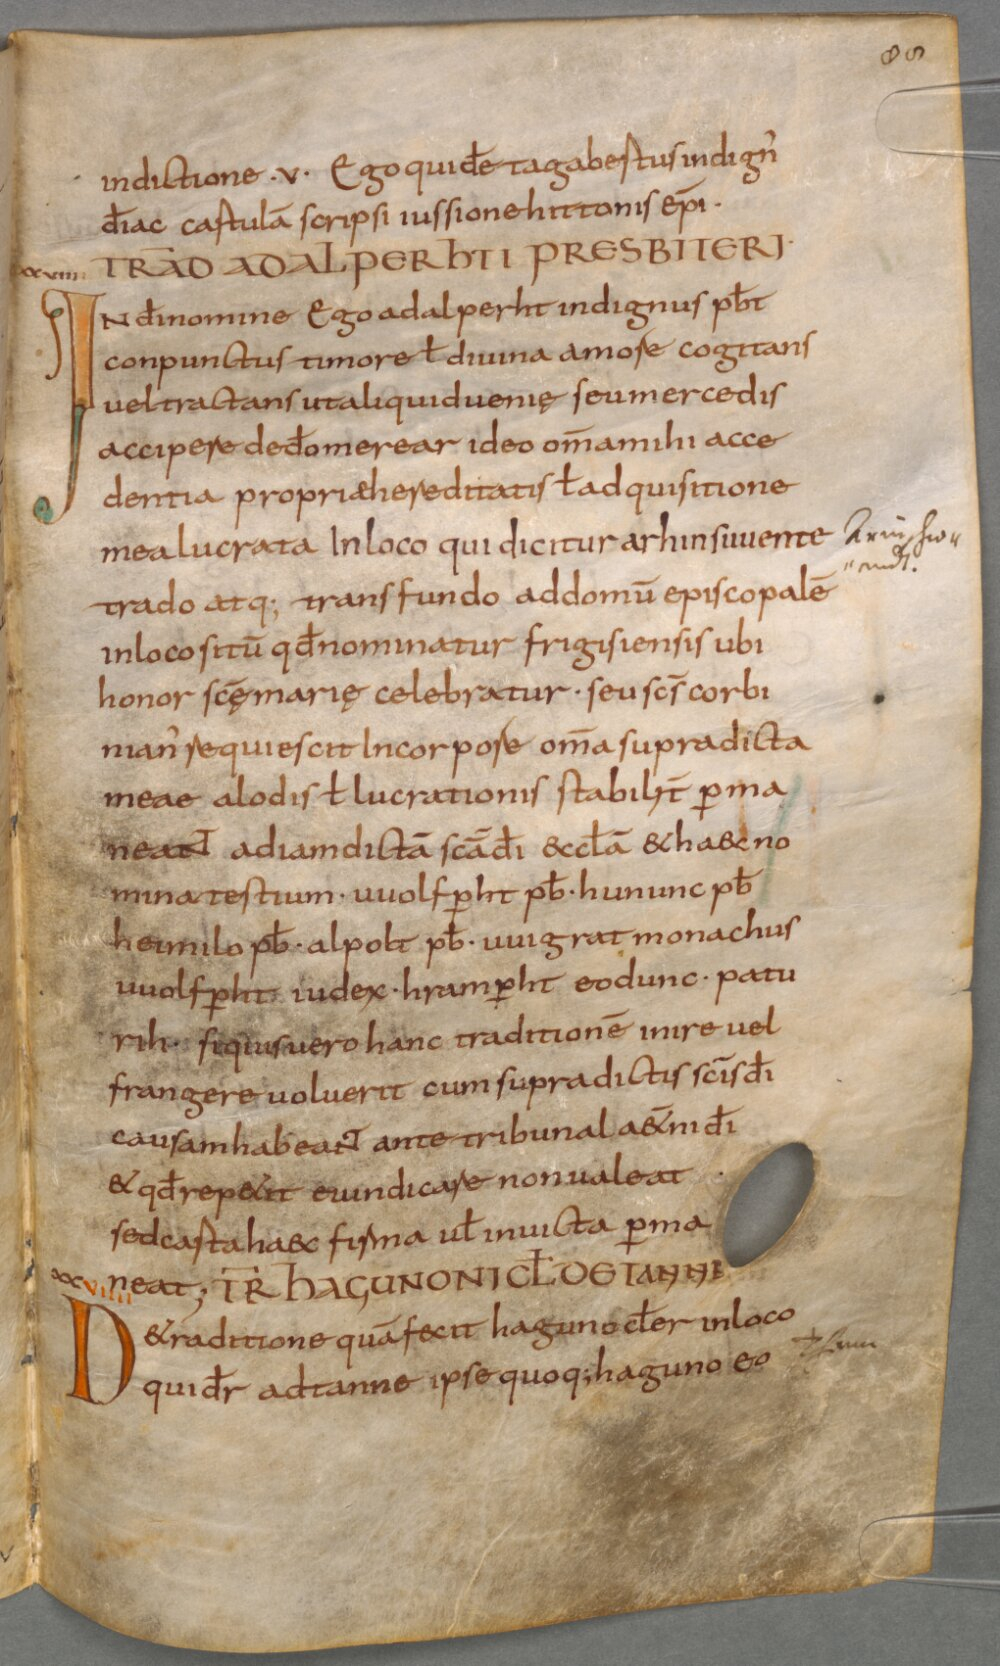 85
indictione ·v· Ego quid̄e tagabestus indign̄
d̄iac castulā scripsi iussione hittonis ep̄i·
xxviii TRAD̄ ADALPERHTI PRESBITERI·
IN d̄i nomine Ego adalperht indignus pb̄t
conpunctus timore ł diuina amore cogitans
uel tractans ut aliquid uenię seu mercedis
accipere de d̄o merear ideo om̄a mihi acce
dentia propriæ hereditatis ł adquisitione
mea lucrata In loco qui dicitur arhinsuuente
trado atq; transfundo ad domū episcopalē
in loco sitū qd̄ nominatur frigisiensis ubi
honor scę̄ marię celebratur· seu scs̄ corbi
nian̄ requiescit In corpore om̄a supradicta
meae alodis ł lucrationis stabilit̄ ꝑma
neant ad iam dictā scā d̄i eccl̄ā & haec no
mina testium· uuolfꝑht pb̄· hununc pb̄
heimilo pb̄· alpolt pb̄· uuigrat monachus
uuolfꝑht iudex· hramꝑht eodunc· patu
rih· siquis uero hanc traditionē inire uel
frangere uoluerit cum supradictis scīs d̄i
causam habeant ante tribunal aet̄ni d̄i
& qd̄ repetit euindicare non ualeat
sed casta haec firma ul̄ inuicta ꝑma
neat; TR̄ HAGUNONI CL̄ DE TANNE
xxviiii De traditione quā fecit haguno cl̄er in loco
qui d̄r ad tanne ipse quoq; haguno eo